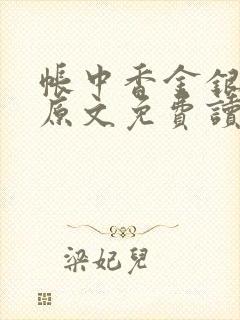 帳中香金銀
原文免費讀
梁妃兒